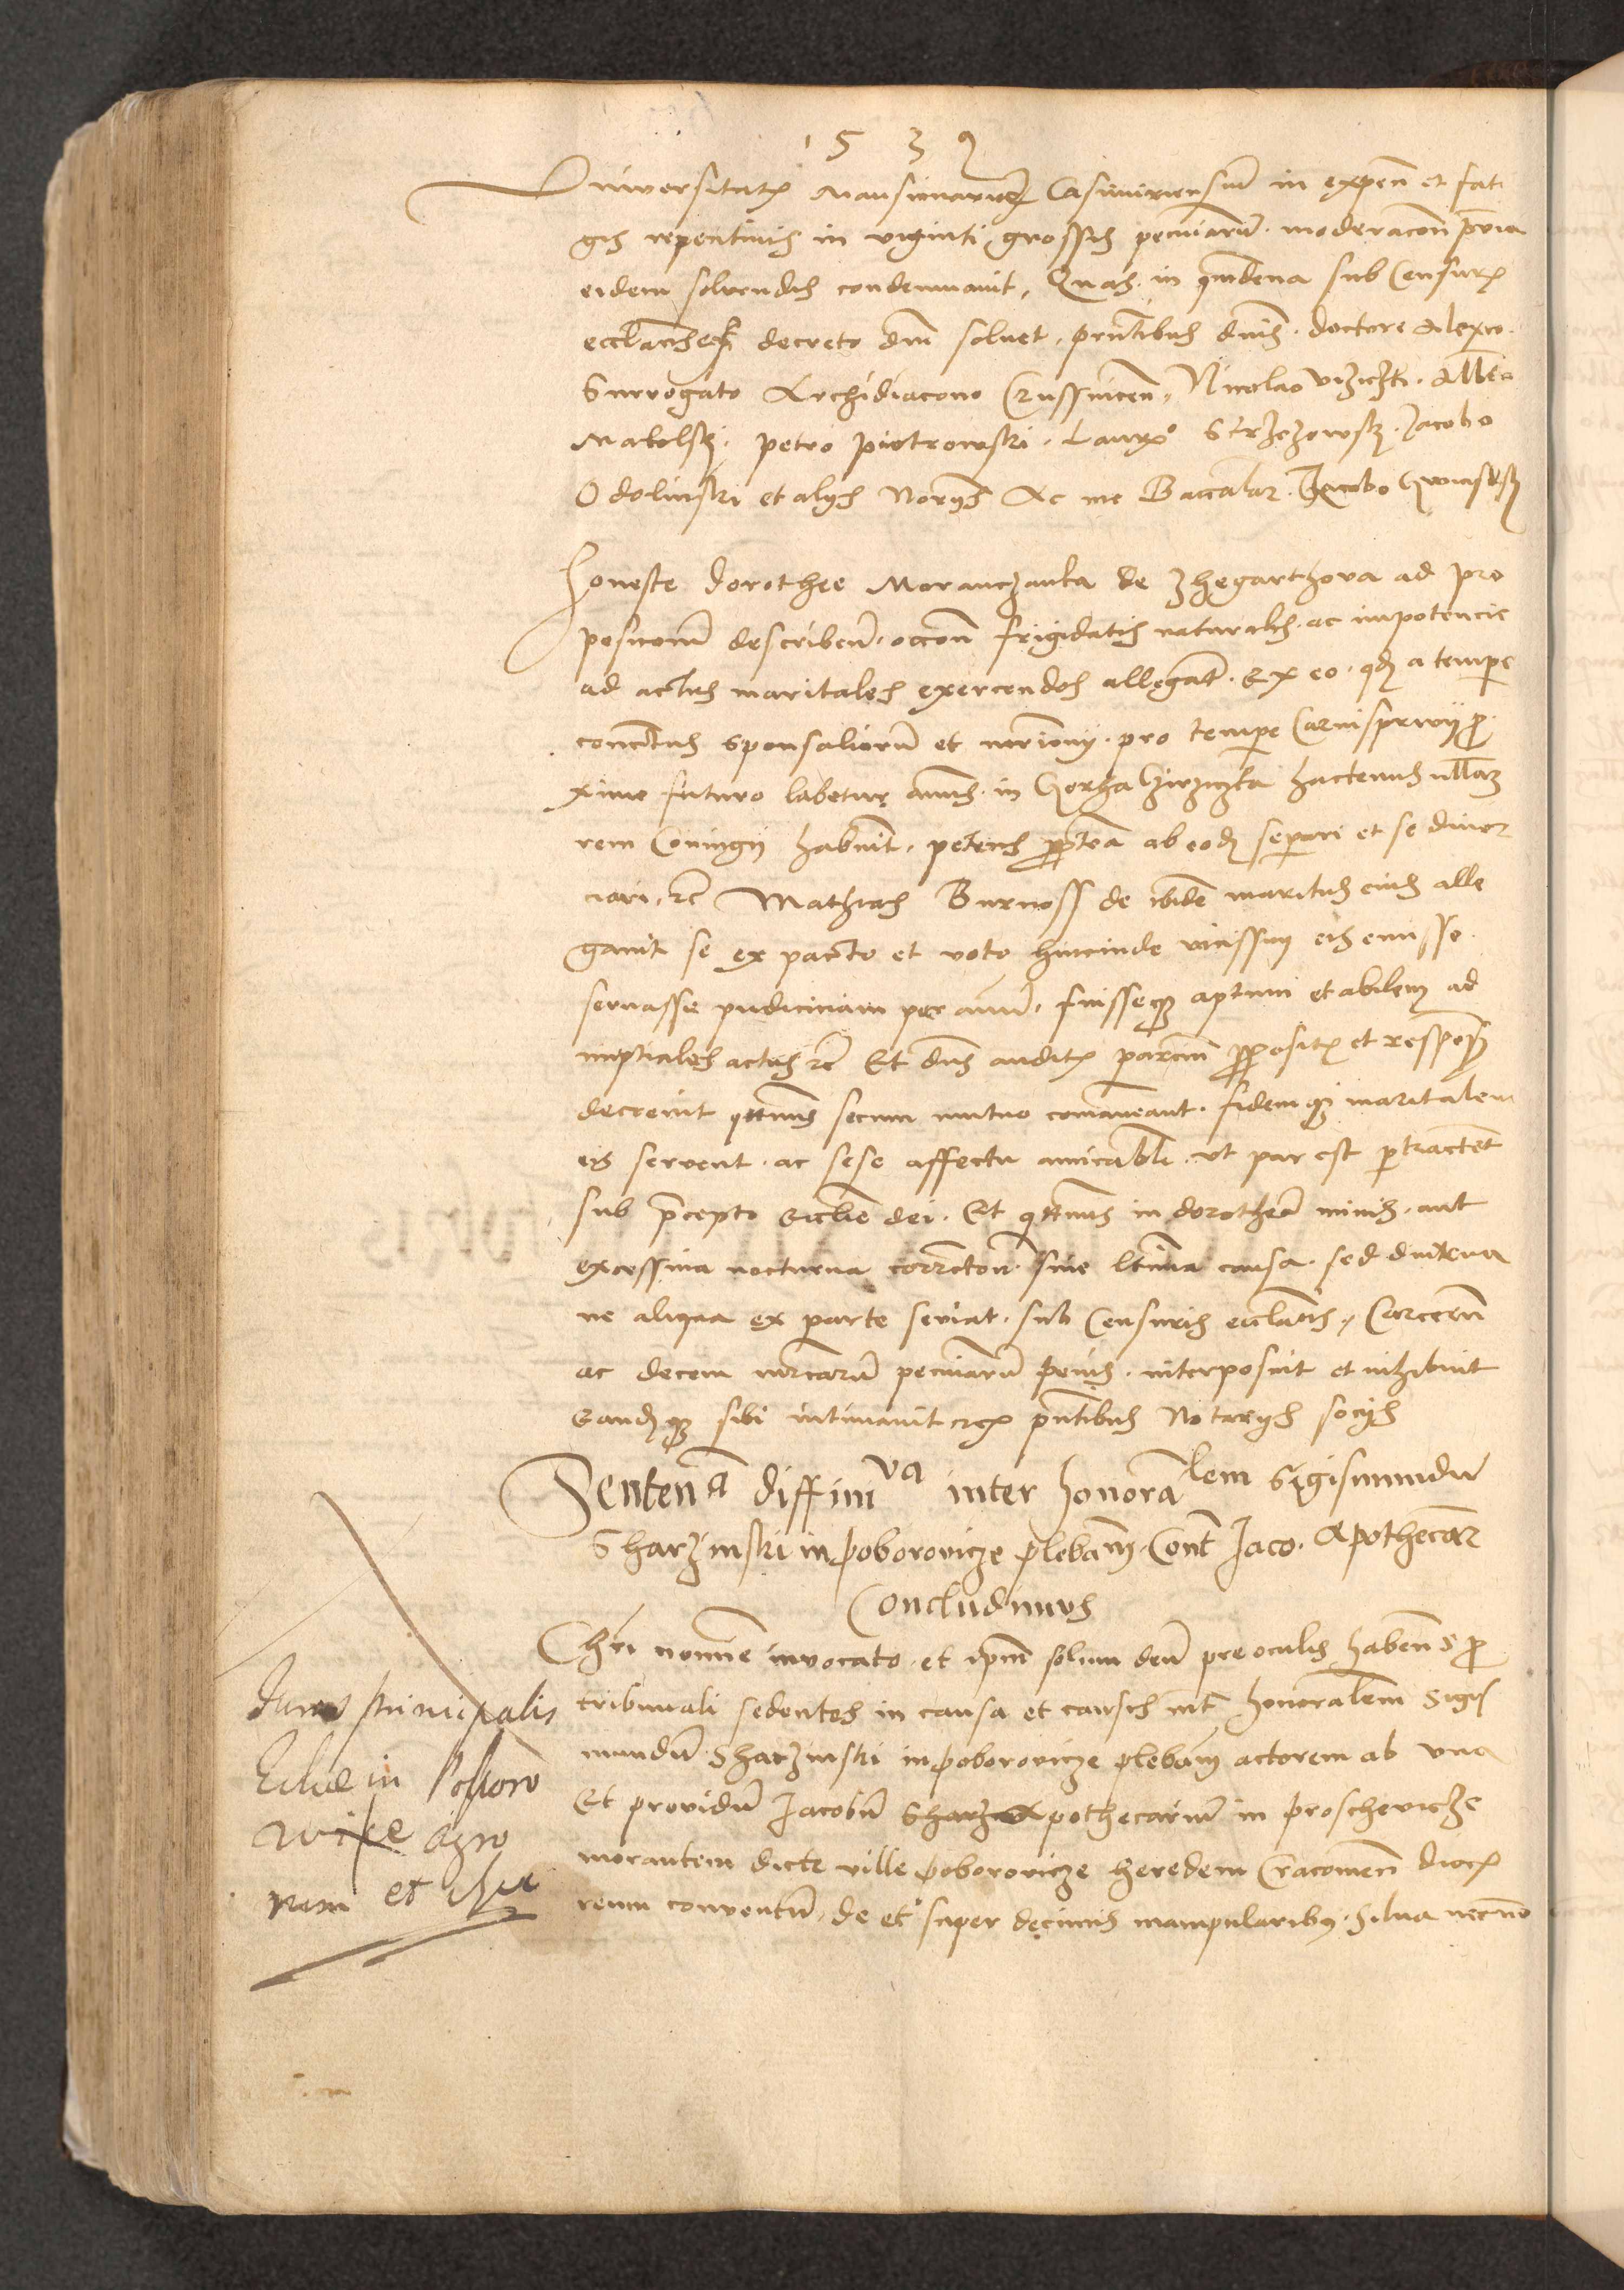 1539
Universitatis Mansionariorum Casimiriensium in expen et fati
gis repentinis in viginti grossis pecuniarum moderacon previa
eidem solvendis condemnavit, Quas in quindena sub Censuris
ecclasticis decreto dni solvet, pntibus dnis doctore Alexio
Surrogato Archidiacono Crusvicen, Nicolao Alberto
Makolski petro piotrowski Laur Strzezowski Jacobo
Odolinski et alys Norys Ac me Baccalar Jacobo
honeste Dorothee Moranczanka de Zhegarthova ad pro
positionem describen occon frigiditatis naturalis ac impotencie
ad actus maritales exercendos allegat Ex eo qd a tempe
contractus sponsaliorum et mrimony pro tempe Carnisprivy pro
ximo futuro labetur annus in hactenus nullam
rem Coniugy habuit, petens propterea ab eodem separi et se divor
ciari, etc Mathias Burnoss de ibidem maritus eius alle
gavit se ex pacto et voto hincinde vicissim eis emisso
servasse pudiciciam per annum, fuisseque aptum et abilem ad
nuptiales actus etc Et dns auditis parcium propositis et responsis
decrevit qttenus secum mutuo comaneant fidemque maritalem
eis servent ac sese affectu amicabili ut par est pertractent
sub precepto Ecclie dei Et qttenus in dorotheam minis aut
excessiva nocturna correcton sine ltima causa sed diuterna
ne aliqua ex parte seviat sub Censuris ecclasticis, Carcerum
ac decem mrcarum pecuniarum penis interposuit et inhibuit
Eandemque sibi intimavit pntibus Notarys socys
Sentencia diffinitiva inter honorabilem Sigismundum
Sharzinski in poborovicze plebanum Cont Jaco Apothecar
Concludimus
Chri nomine invocato et ipm solum deum pre oculis habentes pro
tribunali sedentes in causa et causis int honorabilem Sigis
mundum Sharzinski in poborovicze plebanum actorem ab una
Et providum Jacobum Apothecarium in proschevicze
morantem dicte ville poborovicze heredem Cracovien dioces
reum conventum, de et super decimis manipularibus Silva necnon
Jures principalis
Eccliae in Pobboro
wice agro
rum et